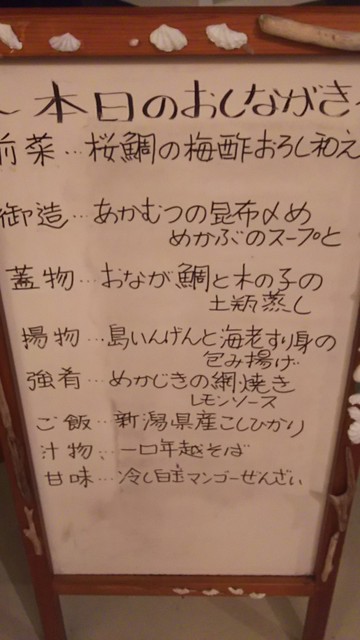 ～本日のおしながき
前菜…桜鯛の梅酢おろし和え
御造…あかむつの昆布〆め
めかぶのスープと
蓋物…おなが鯛と木の子の
土瓶蒸し
揚物…島いんげんと海老すり身の
包み揚げ
強肴…めかじきの網焼き
レモンソース
ご飯…新潟県産こしひかり
汁物…一口年越そば
甘味…冷し白玉マンゴーぜんざい